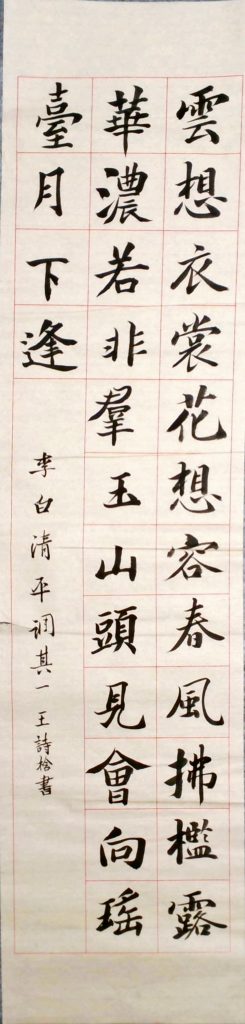 雲想衣裳花想容春風拂檻露
華濃若非羣玉山頭見會向瑤
臺月下逢
李白清平调其一王詩捨書